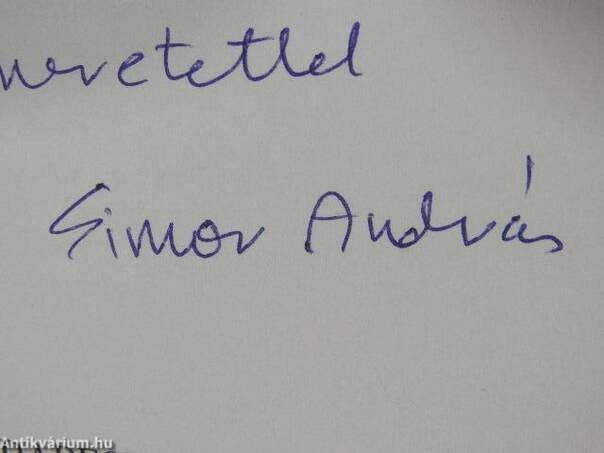 neretettel
Simor András
Antikvárium.hu